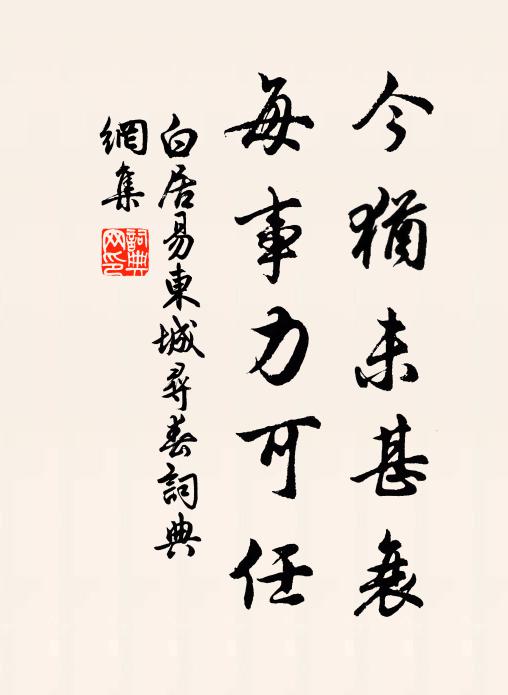 今猶未甚衰
每事力可任
白居易東城尋春詞典
網集
詞典
网印